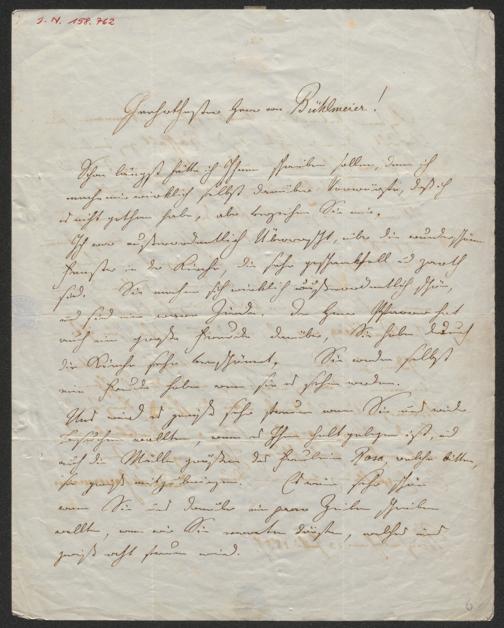 J. N. 158.762
Geehrthester Herr von Bühlmeier!
Schon längst hätte ich Ihnen schreiben sollen, denn ich
mache mir wirklich selbst darüber Vorwürfe, daß ich
es nicht gethan habe, aber verzeihen Sie mir.
Ich war außerordentlich Überrascht, über die wunderschönen
Fenster in der Kirche, die sehr geschmackvoll u zart
sind. Sie machen sich wirklich außerordentlich schön,
und sind eine wahre Zierde. Der Herr Pfarrer hat
auch eine große Freude darüber, Sie haben dadurch
die Kirche sehr verschönert, Sie werden selbst
eine Freude haben wenn sie es sehen werden.
Uns wird es gewiß sehr freuen wenn Sie uns wieder
besuchen wollten, wenn es Ihnen halt gelegen ist, und
auch die Mutter grüßen das Fräulein Rosa welche bitten,
sie gewiß mitzubringen. Es wäre sehr schön
wenn Sie uns darüber ein paar Zeilen schreiben
wollten, wann wir Sie erwarten dürften, welches uns
gewiß recht freuen wird.